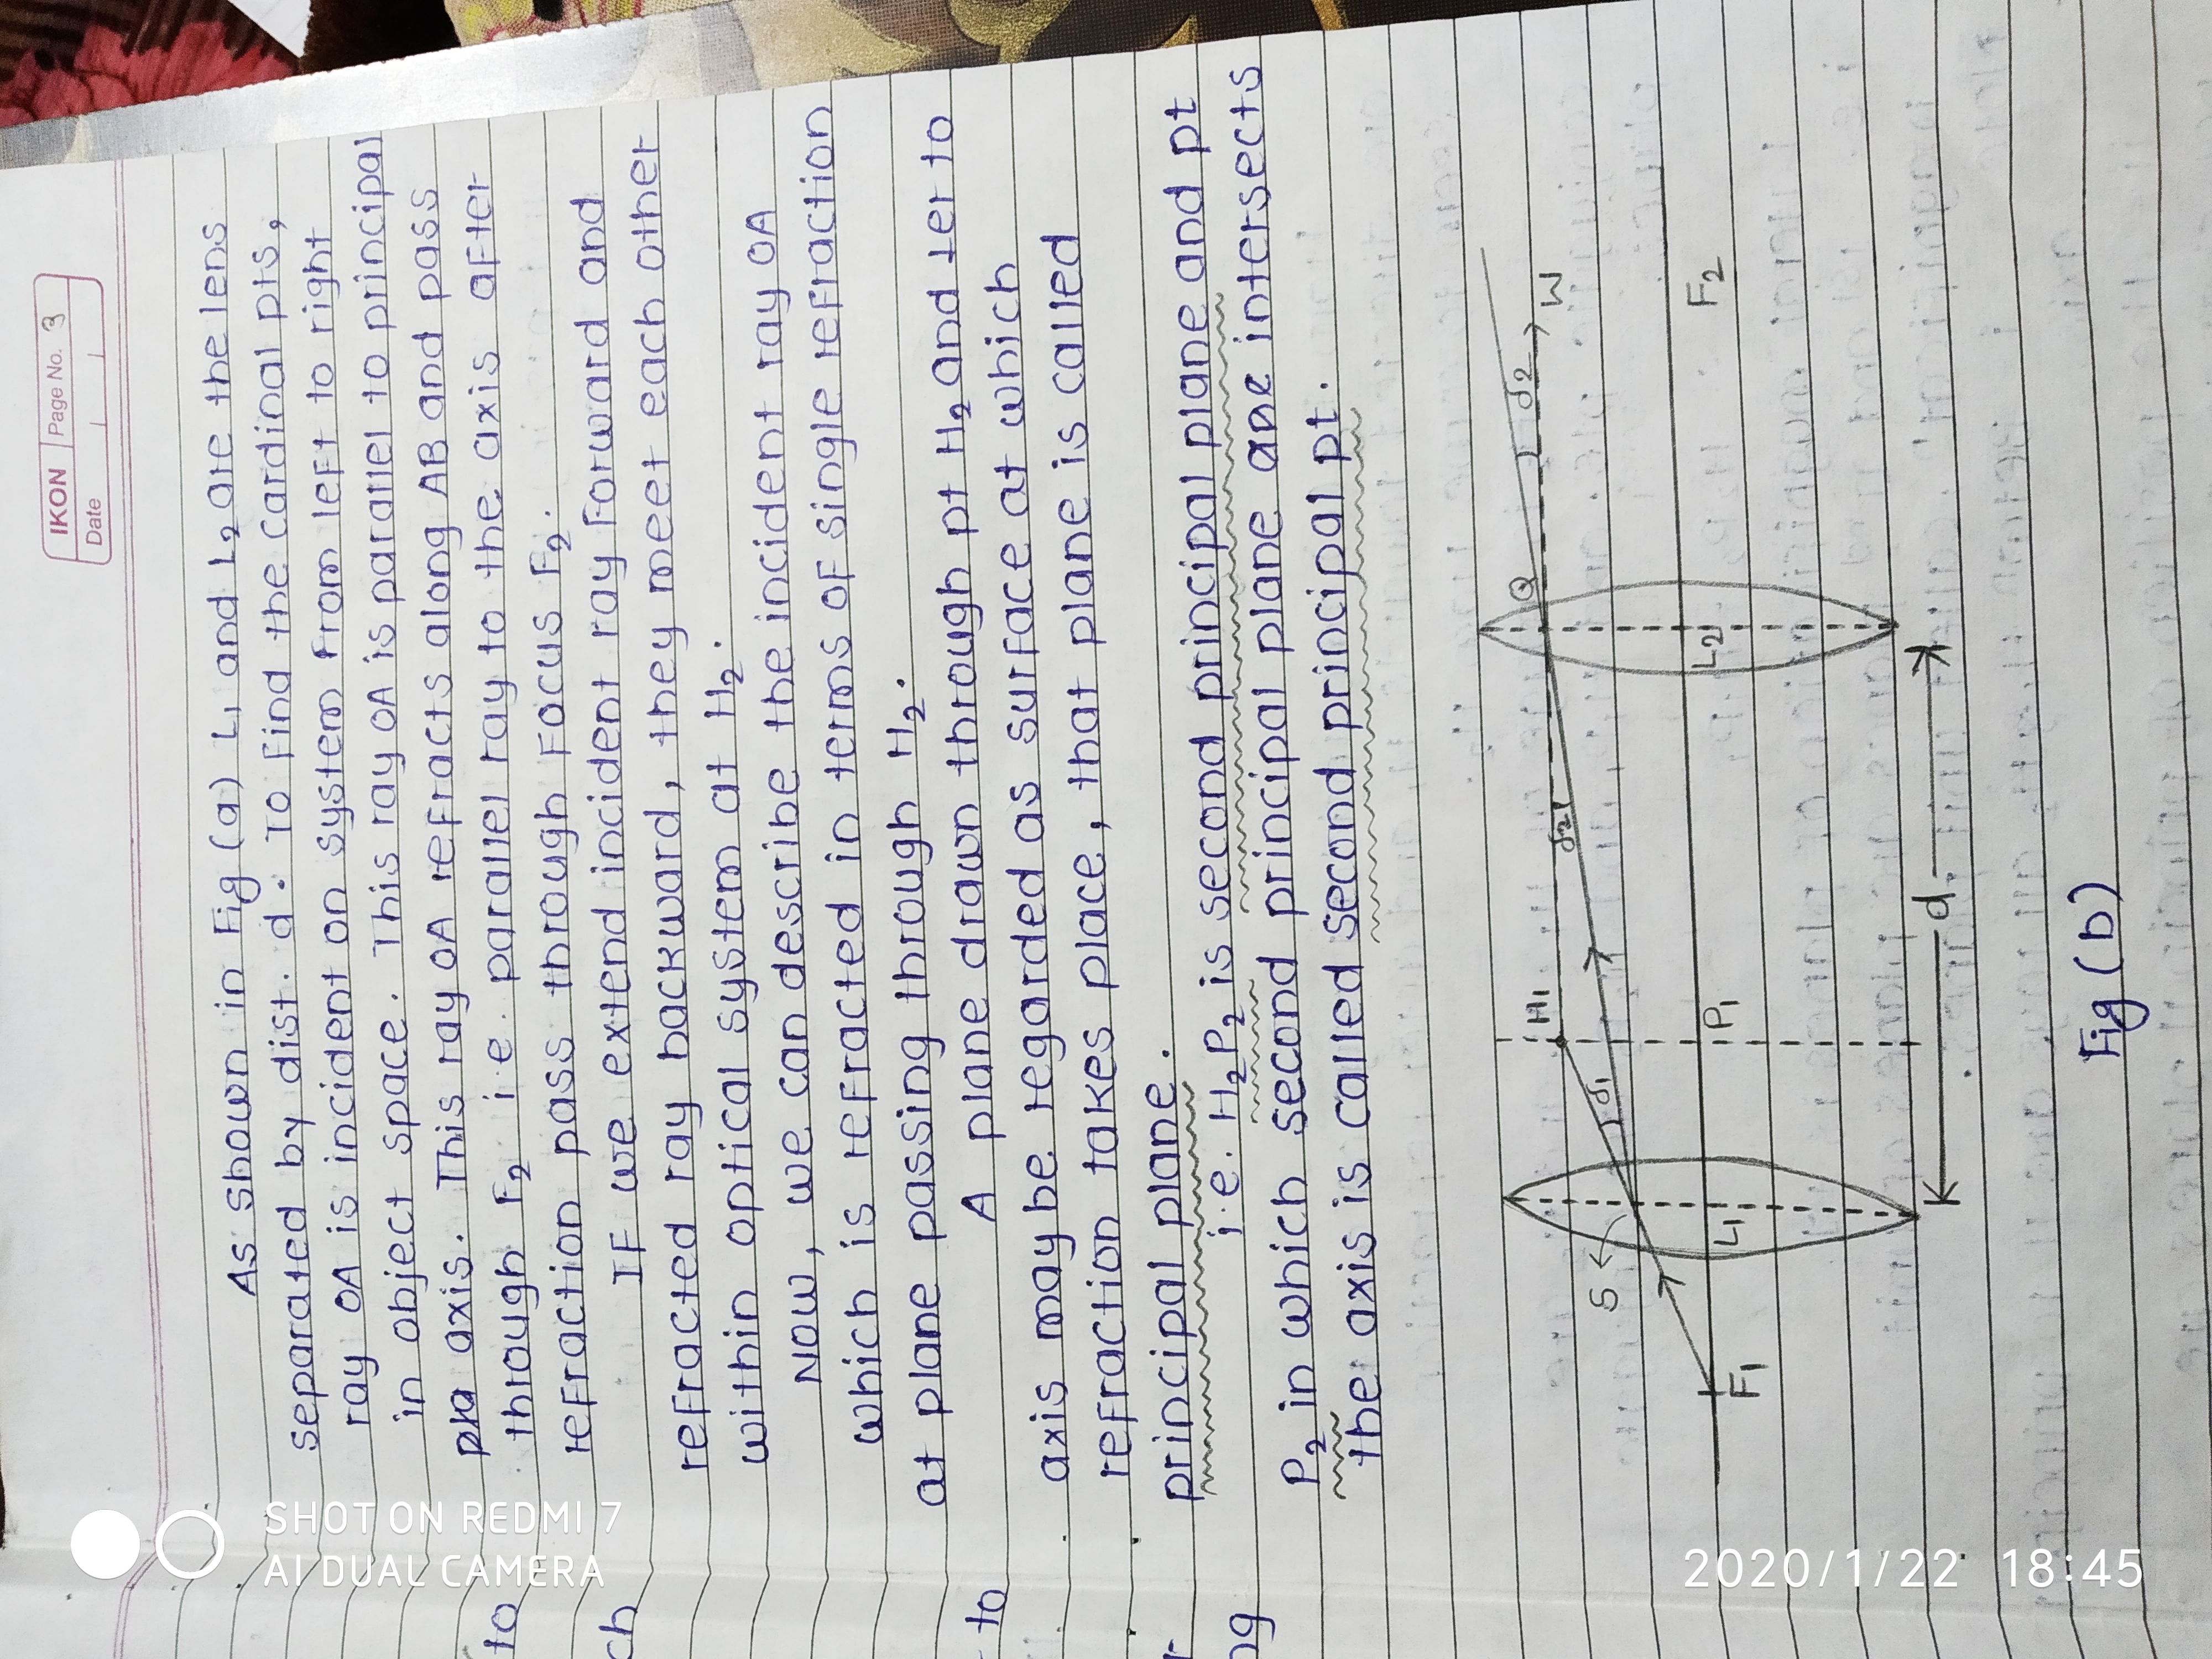 IKON Page No. 3
Date
As shown in Fig (a) L₁ and L₂ are the lens
separated by dist. d. To find the cardinal pts,
ray OA is incident on system from left to right
in object space. This ray OA is parallel to principal
axis. This ray OA refracts along AB and pass
through F₂ i.e. parallel ray to the axis after
refraction pass through focus F₂.
If we extend incident ray forward and
refracted ray backward, they meet each other
within optical system at H₂.
Now, we can describe the incident ray OA
which is refracted in terms of single refraction
at plane passing through H₂.
A plane drawn through pt H₂ and ⊥er to
axis may be regarded as surface at which
refraction takes place, that plane is called
principal plane.
i.e. H₂P₂ is second principal plane and pt
P₂ in which second principal plane are intersects
the axis is called second principal pt.
H₁
S
δ₁
δ₂
Q
δ₂
W
F₁
L₁
P₁
L₂
F₂
d
Fig (b)
to
ch
to
ng
SHOT ON REDMI 7
AI DUAL CAMERA
2020/1/22 18:45